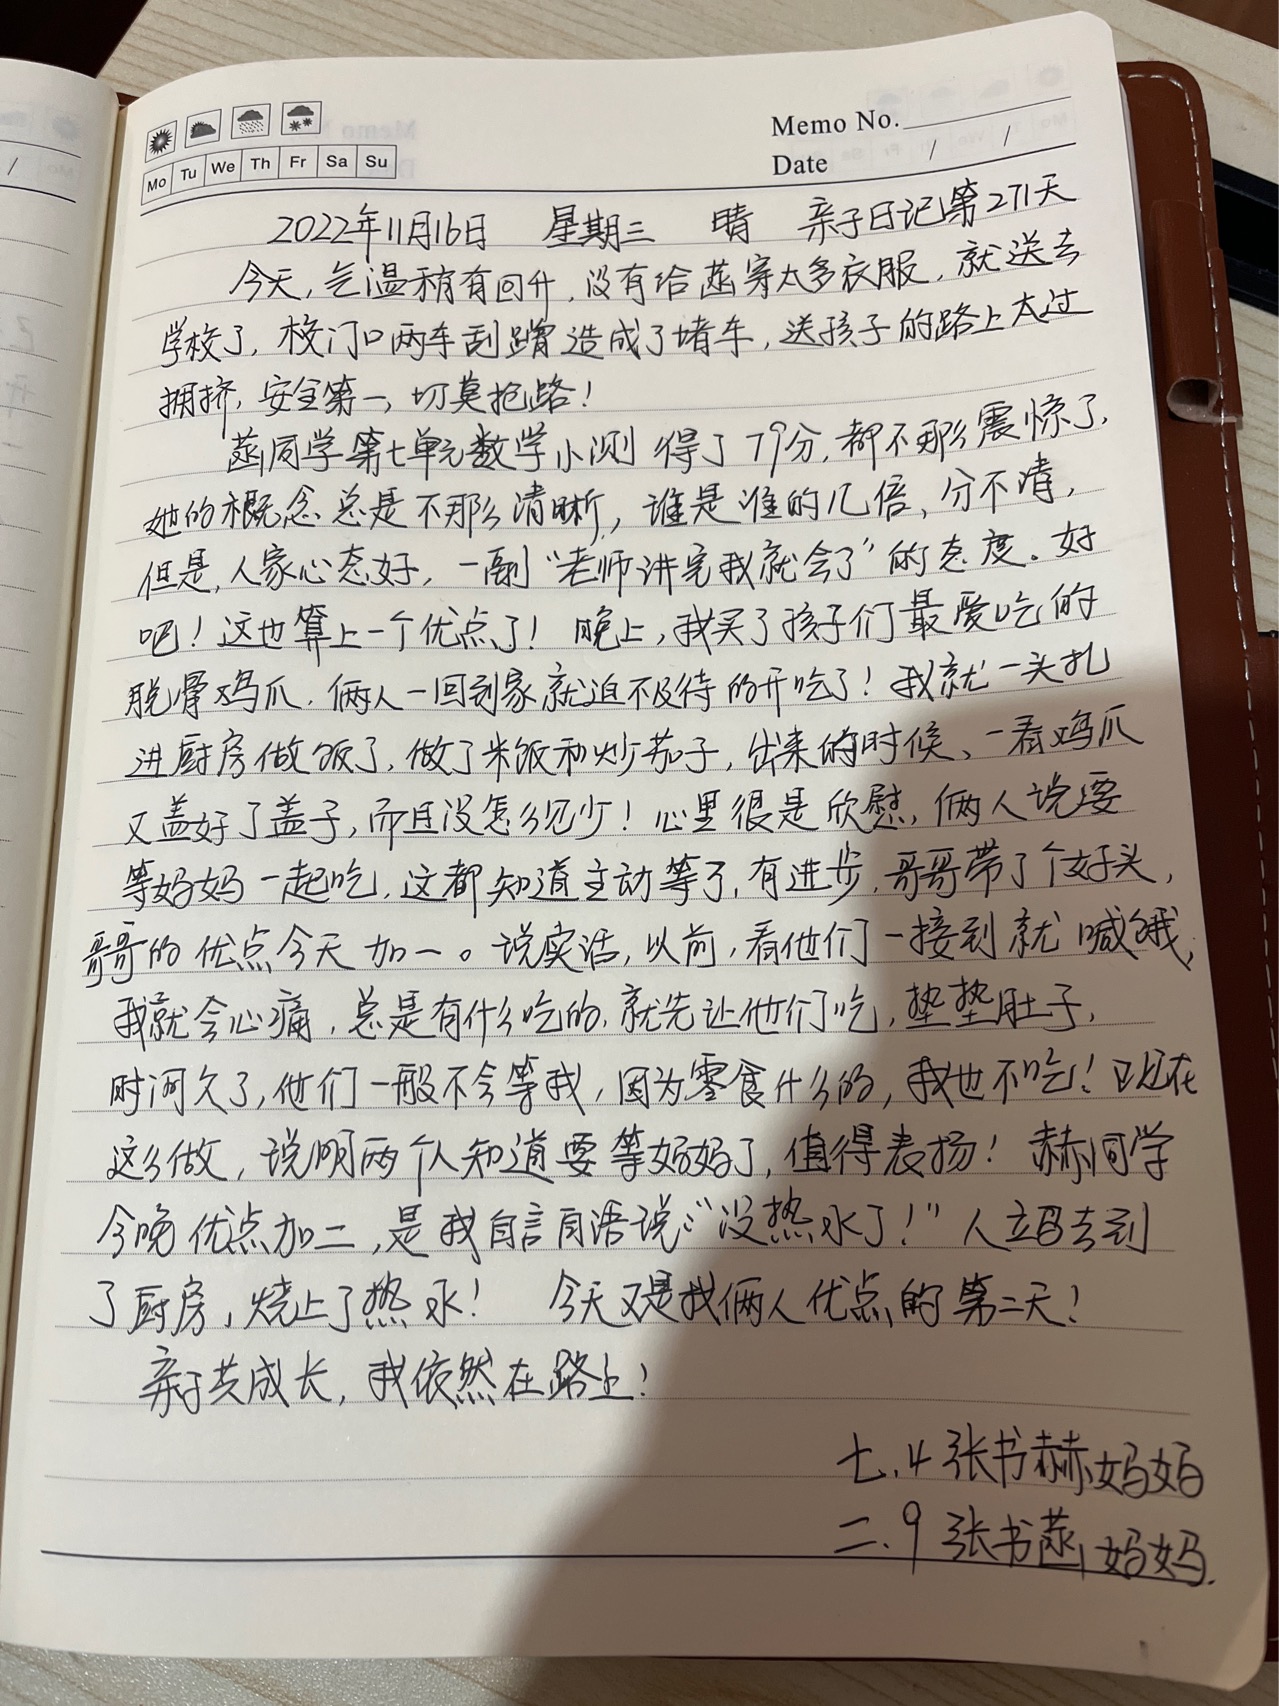 Memo No.
Mo Tu We Th Fr Sa Su
Date / /
2022年11月16日 星期三 晴 亲子日记第271天
今天,气温稍有回升,没有给菡穿太多衣服,就送去
学校了,校门口两车刮蹭造成了堵车,送孩子的路上太过
拥挤,安全第一,切莫抢路!
菡同学第七单元数学小测得了79分,都不那么震惊了,
她的概念总是不那么清晰,谁是谁的几倍,分不清,
但是,人家心态好,一副“老师讲完我就会了”的态度。好
吧!这也算上一个优点了!晚上,我买了孩子们最爱吃的
脱骨鸡爪,俩人一回到家就迫不及待的开吃了!我就一头扎
进厨房做饭了,做了米饭和炒茄子,出来的时候、一看鸡爪
又盖好了盖子,而且没怎么见少!心里很是欣慰,俩人说要
等妈妈一起吃,这都知道主动等了,有进步,哥哥带了个好头,
哥哥的优点今天加一。说实话,以前,看他们一接到就喊饿,
我就会心痛,总是有什么吃的,就先让他们吃,垫垫肚子,
时间久了,他们一般不会等我,因为零食什么的,我也不吃!现在
这么做,说明两个人知道要等妈妈了,值得表扬!赫同学
今晚优点加二,是我自言自语说:“没热水了!”人立马去到
了厨房,烧上了热水! 今天又是找俩人优点的第二天!
亲子共成长,我依然在路上!
七.4张书赫妈妈
二.9张书菡妈妈.